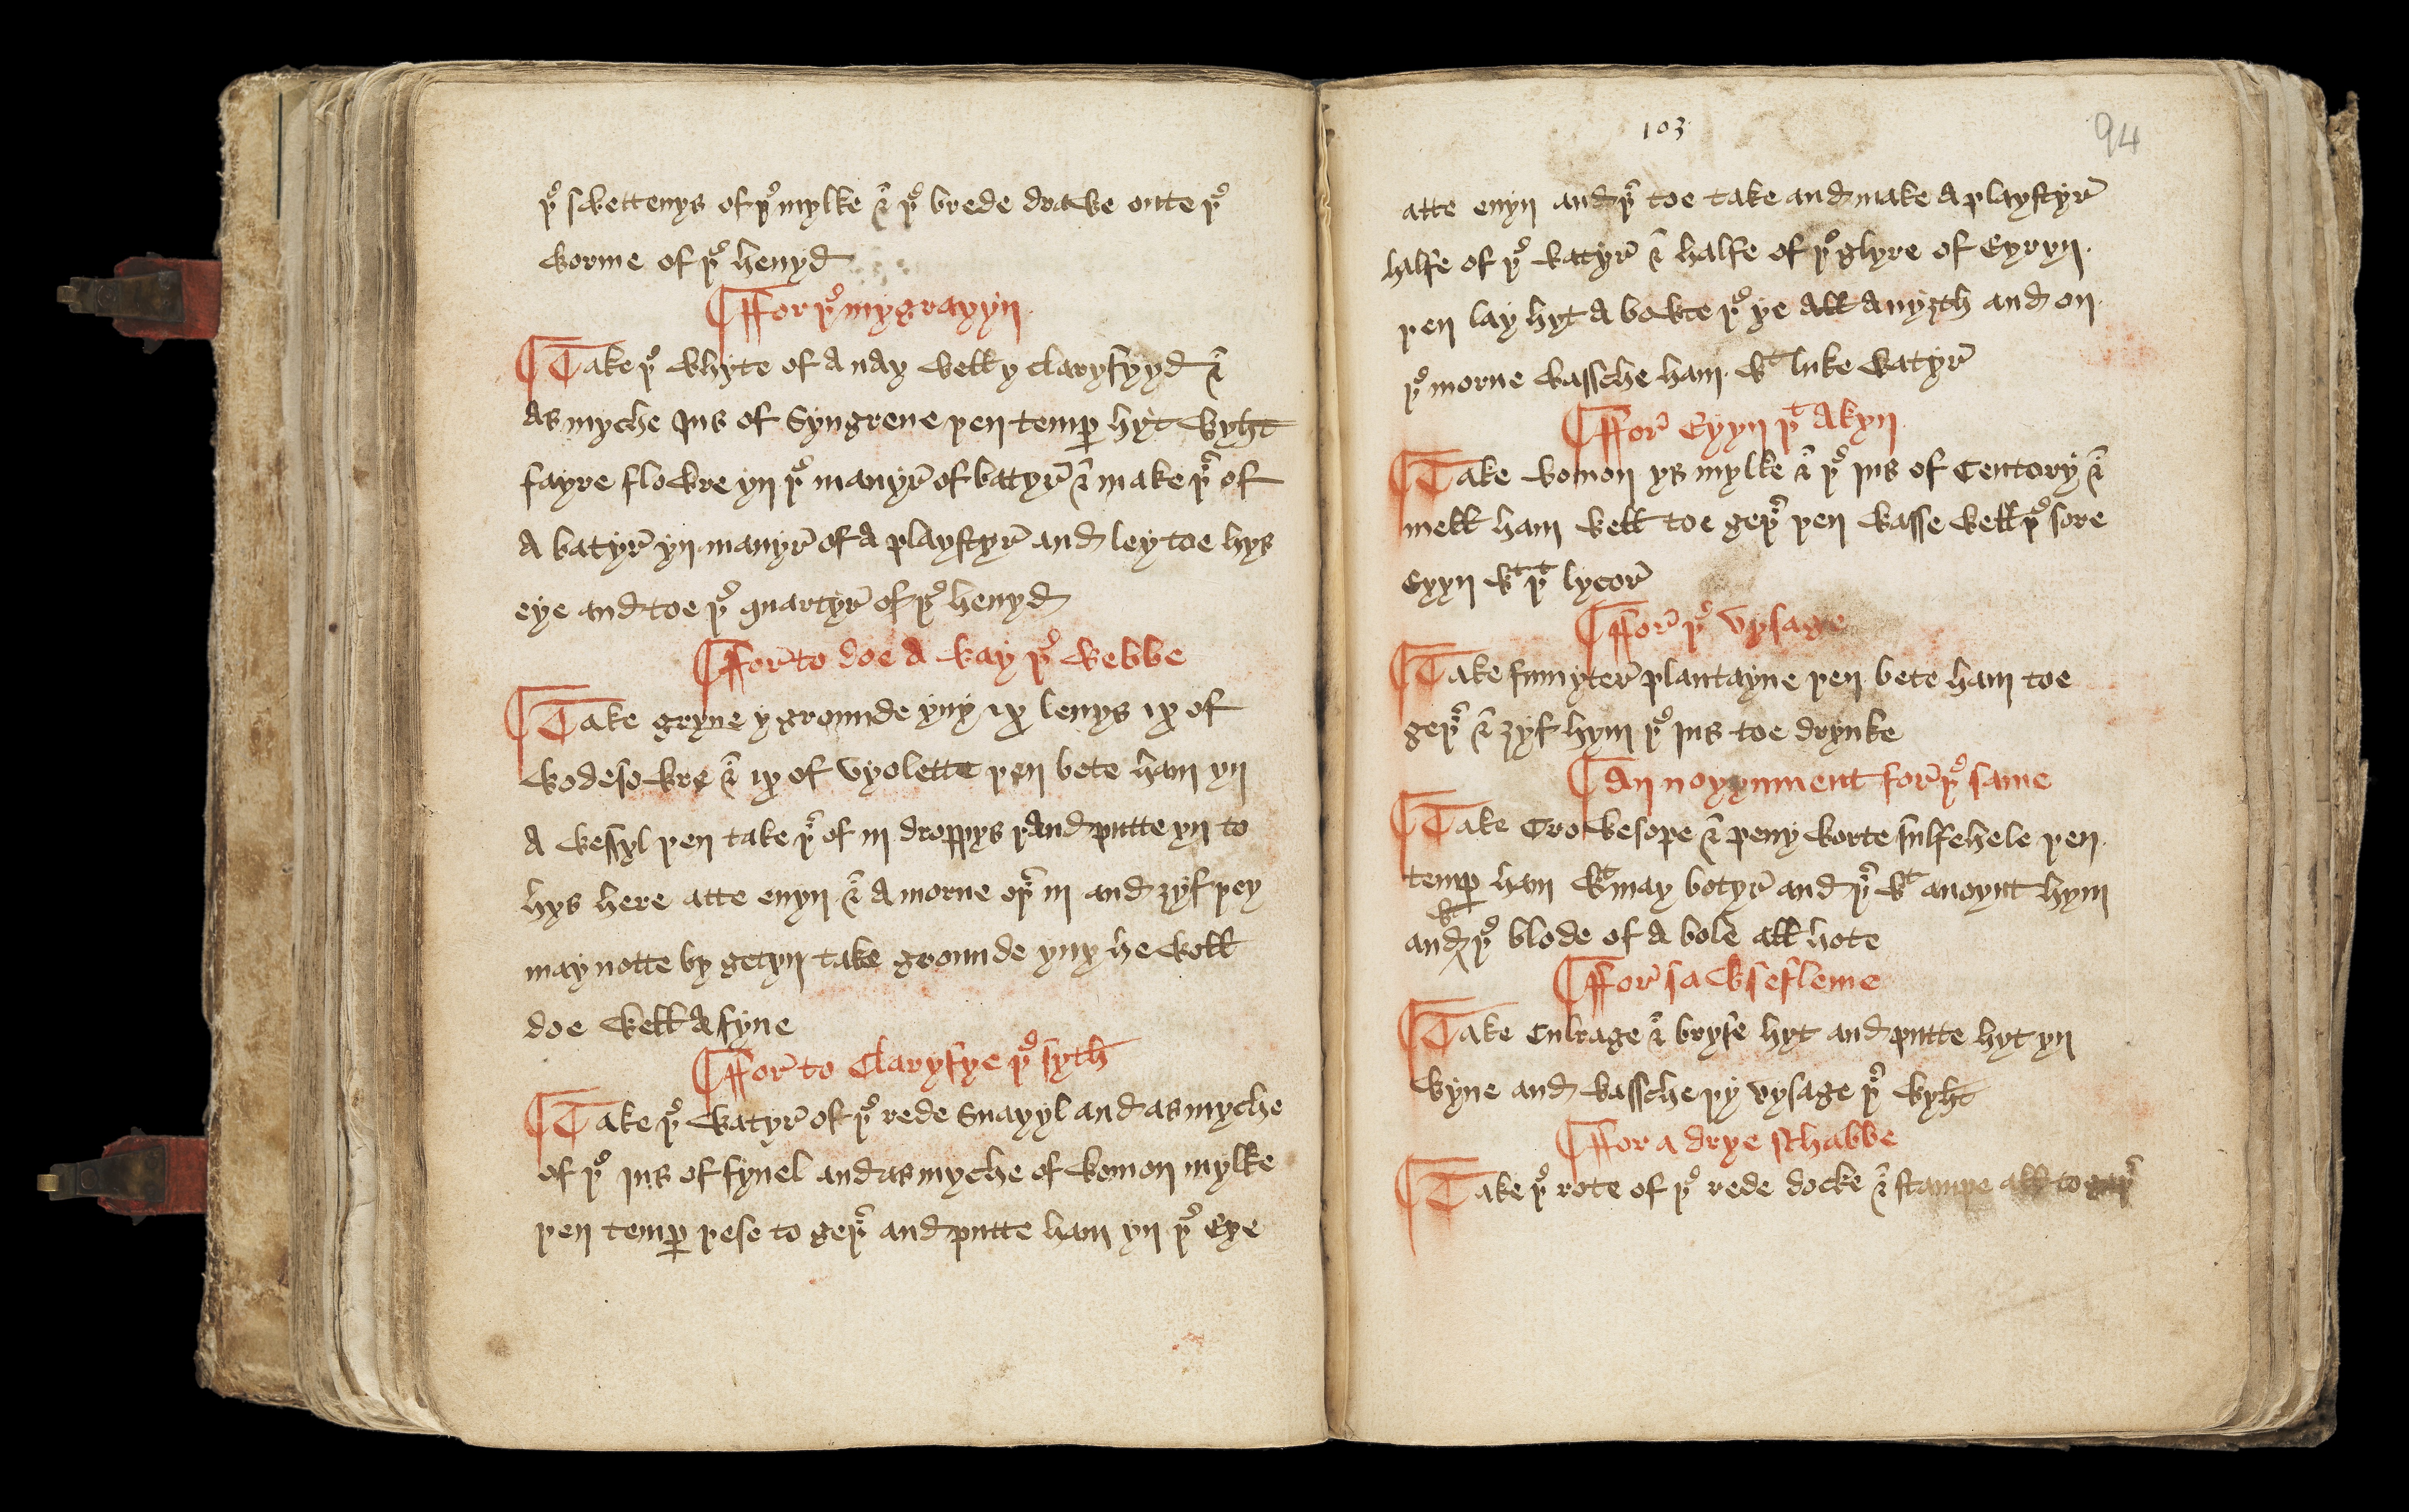 þe swettenys of þe mylke & þe brede drawe oute þe
worme of þe heuyd
¶ffor þe mygrayyn
¶Take þe whyte of A nay well y claryfyyd &
As myche Jus of Syngrene þen temp hyt wyht
fayre flowre yn þe manyr of batyr & make þr of
A batyr yn manyr of A playstyr and ley toe hys
eye and toe þe quartyr of þe heuyd
¶ffor to doe A way þe webbe
¶Take gryne y grounde yuy ix leuys ix of
wodesowre & ix of vyolette þen bete ham yn
A wessyl þen take þr of iii droppys and putte yn to
hys here atte euyn & A morne oþr iii and ȝyf þey
may notte by getyn take grounde yuy he woll
doe well A fyne
¶ffor to Claryfye þe syth
¶Take þe watyr of þe rede Snayyl and as myche
of þe jus of fynel and as myche of womon mylke
þen temp þese to geþr and putte ham yn þe Eye
103
94
atte euyn and þr toe take and make A playstyr
halfe of þe watyr & halfe of þe glyre of Eyryn
þen lay hyt A bowte þe ye All A nyȝth and on
þe morne wassche ham wt luke watyr
¶ffor Eyyn þt Akyn
¶Take womon ys mylke & þe jus of Centory &
mell ham well toe geþr þen wasse well þe sore
Eyyn wt þt lycor
¶ffor þe vysage
¶Take fumyter plantayne þen bete ham toe
geþr & ȝyf hym þe jus toe drynke
¶An noyynment for þe same
¶Take Crowesope & peny worte sulfehele þen
temp ham wt may botyr and þr wt anoynt hym
wt
and þe blode of A bole all hote
¶ffor sawsefleme
¶Take Culrage & bryse hyt and putte hyt yn
wyne and wassche þy vysage þr wyht
¶ffor a drye schabbe
¶Take þe rote of þe rede docke & stampe all to geþr